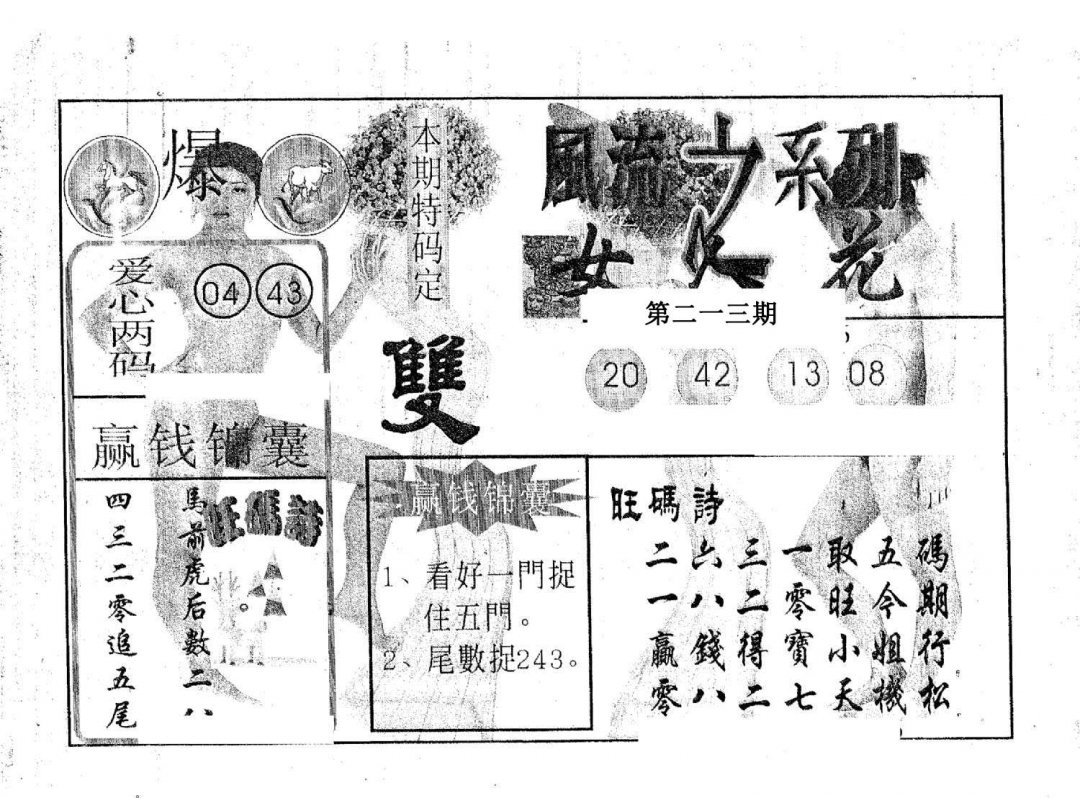 爆
本期特码定
雙
爱心两码
04 43
風流之系列
女人花
第二一三期
20 42 13 08
赢钱锦囊
旺碼詩
馬前虎后數二八
四三二零追五尾
赢钱锦囊
1、看好一門捉
住五門。
2、尾數捉243。
旺碼詩
二六三一取五碼
一八二零旺今期
贏錢得寶小姐行
零八二七天機松